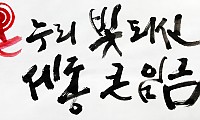 온 누리 빛 되신
세종 큰 임금